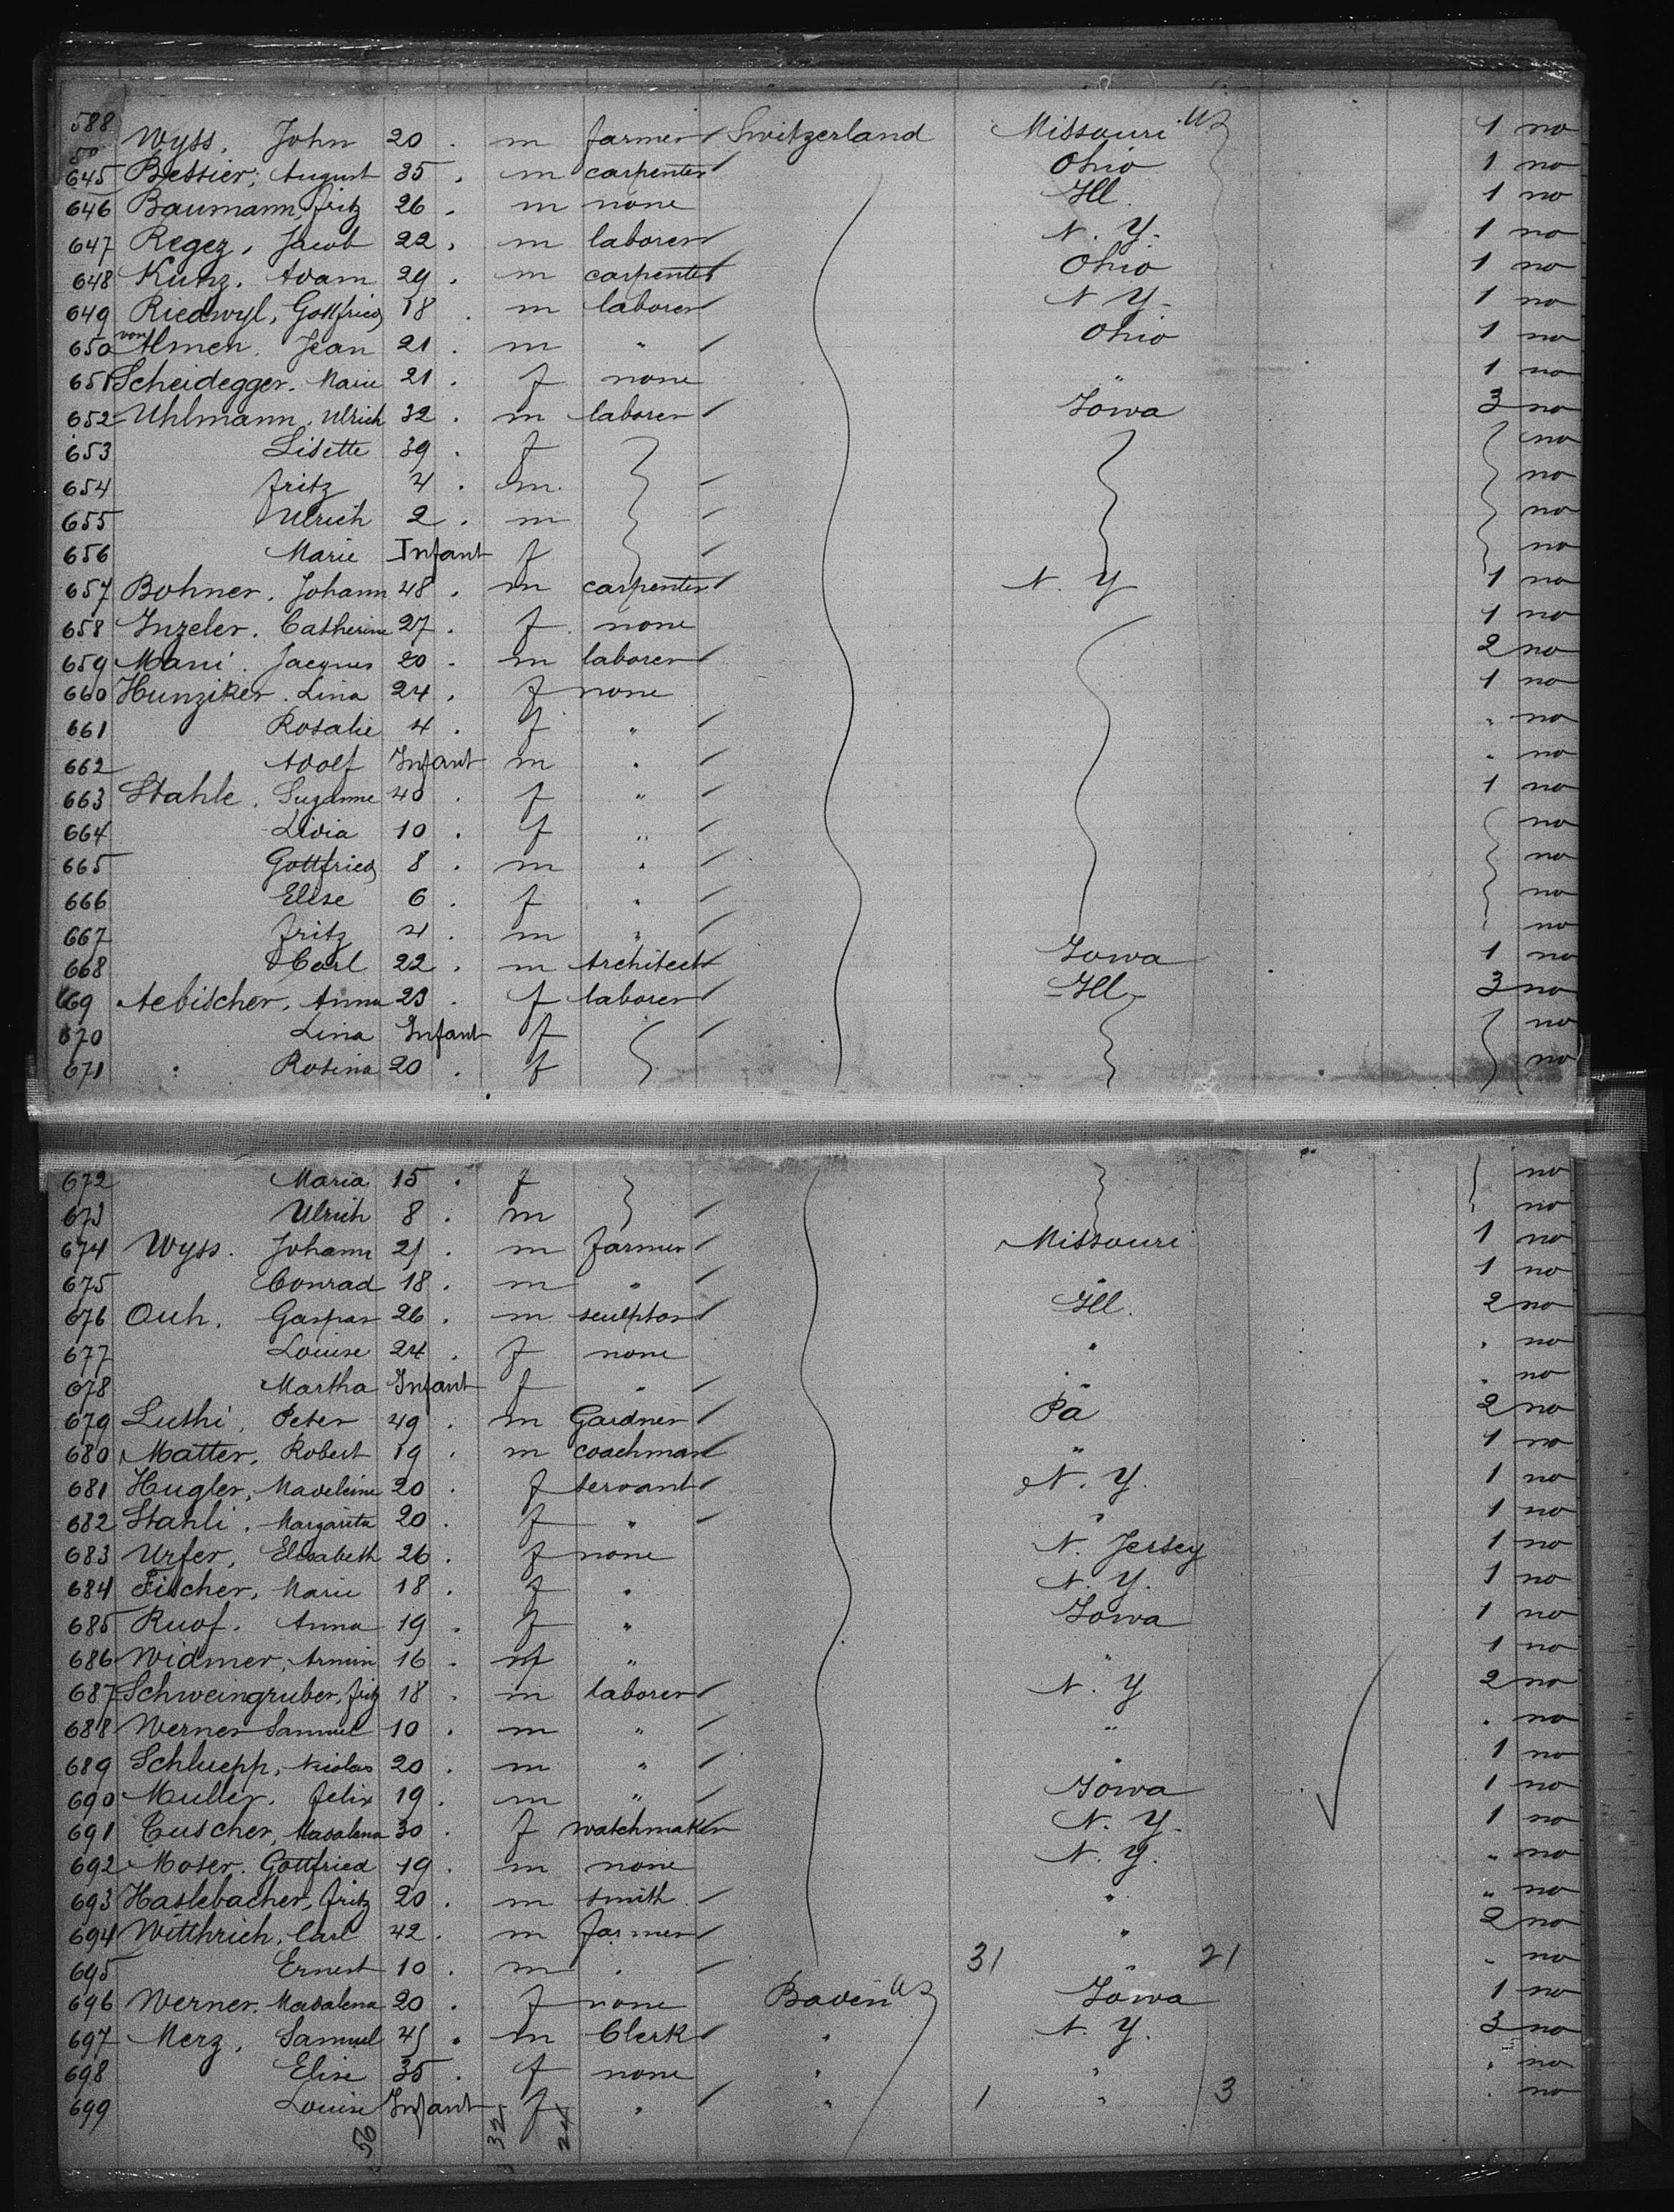 588 Wyss, John 20 m farmer Switzerland Missouri 1 no
645 Bessier, August 35 m carpenter Ohio 1 no
646 Baumann, Fritz 26 m none Ill. 1 no
647 Regez, Jacob 22 m laborer N. Y. 1 no
648 Kunz, Adam 29 m carpenter Ohio 1 no
649 Riedwyl, Gottfried 18 m laborer N. Y. 1 no
650 von Almen, Jean 21 m " Ohio 1 no
651 Scheidegger, Marie 21 f none " 1 no
652 Uhlmann, Ulrich 32 m laborer Iowa 3 no
653 Lisette 39 f no
654 Fritz 4 m no
655 Ulrich 2 m no
656 Marie Infant f no
657 Bohner, Johann 48 m carpenter N. Y 1 no
658 Inzeler, Catherine 27 f none 1 no
659 Mani, Jacques 20 m laborer 2 no
660 Hunziker, Lina 24 f none 1 no
661 Rosalie 4 f " " no
662 Adolf Infant m " " no
663 Stahle, Suzanne 40 f " 1 no
664 Lidia 10 f " no
665 Gottfried 8 m " no
666 Elise 6 f " no
667 Fritz 4 m " no
668 Carl 22 m Architect Iowa 1 no
669 Aebischer, Anna 23 f laborer Ill 3 no
670 Lina Infant f no
671 Rosina 20 f no
672 Maria 15 f no
673 Ulrich 8 m no
674 Wyss, Johann 21 m farmer Missouri 1 no
675 Conrad 18 m " " 1 no
676 Ouh, Gaspar 26 m sculptor Ill. 2 no
677 Louise 24 f none " " no
678 Martha Infant f " " " no
679 Luthi, Peter 49 m Gardner Pa 2 no
680 Matter, Robert 19 m coachman " 1 no
681 Hugler, Madeleine 20 f servant N. Y. 1 no
682 Stahli, Margarita 20 f " " 1 no
683 Urfer, Elisabeth 26 f none N. Jersey 1 no
684 Fischer, Marie 18 f " N. Y. 1 no
685 Ruof, Anna 19 f " Iowa 1 no
686 Widmer, Armin 16 m " " 1 no
687 Schweingruber, Fritz 18 m laborer N. Y 2 no
688 Werner Samuel 10 m " " " no
689 Schluepp, Nicolas 20 m " " 1 no
690 Muller, Felix 19 m " Iowa 1 no
691 Cuscher, Madalena 30 f watchmaker N. Y. 1 no
692 Moser, Gottfried 19 m none N. Y. " no
693 Haslebacher, Fritz 20 m smith " " no
694 Witthrich, Carl 42 m farmer " 2 no
695 Ernest 10 m " 31 " 21 " no
696 Werner, Madalena 20 f none Baden Iowa 1 no
697 Merz, Samuel 45 m Clerk " N. Y. 3 no
698 Elise 35 f none " " " no
699 Louise Infant f " " 1 " 3 " no
56 32 24